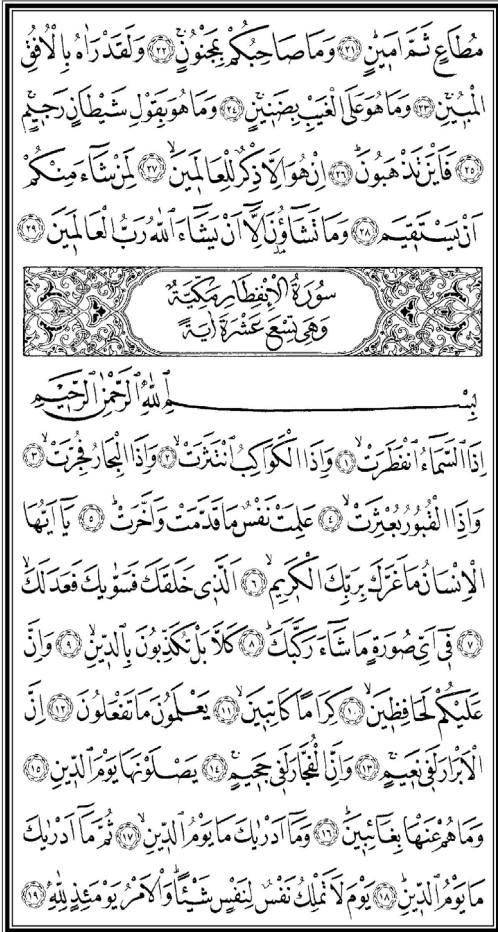 مُطَاعٍ ثَمَّ اَمٖينٍۜ ﴿٢١﴾ وَمَا صَاحِبُكُمْ بِمَجْنُونٍۚ ﴿٢٢﴾ وَلَقَدْ رَاٰهُ بِالْاُفُقِ
الْمُبٖينِۚ ﴿٢٣﴾ وَمَا هُوَ عَلَى الْغَيْبِ بِضَنٖينٍۚ ﴿٢٤﴾ وَمَا هُوَ بِقَوْلِ شَيْطَانٍ رَجٖيمٍۙ
﴿٢٥﴾ فَاَيْنَ تَذْهَبُونَۜ ﴿٢٦﴾ اِنْ هُوَ اِلَّا ذِكْرٌ لِلْعَالَمٖينَۙ ﴿٢٧﴾ لِمَنْ شَٓاءَ مِنْكُمْ
اَنْ يَسْتَقٖيمَۜ ﴿٢٨﴾ وَمَا تَشَٓاؤُ۫نَ اِلَّٓا اَنْ يَشَٓاءَ اللّٰهُ رَبُّ الْعَالَمٖينَ ﴿٢٩﴾
سُورَةُ الْاِنْفِطَارِ مَكِّيَّةٌ
وَهِيَ تِسْعَ عَشْرَةَ اٰيَةً
بِسْمِ اللّٰهِ الرَّحْمٰنِ الرَّحٖيمِ
اِذَا السَّمَٓاءُ انْفَطَرَتْۙ ﴿١﴾ وَاِذَا الْكَوَاكِبُ انْتَثَرَتْۙ ﴿٢﴾ وَاِذَا الْبِحَارُ فُجِّرَتْۙ ﴿٣﴾
وَاِذَا الْقُبُورُ بُعْثِرَتْۙ ﴿٤﴾ عَلِمَتْ نَفْسٌ مَا قَدَّمَتْ وَاَخَّرَتْۜ ﴿٥﴾ يَٓا اَيُّهَا
الْاِنْسَانُ مَا غَرَّكَ بِرَبِّكَ الْكَرٖيمِۙ ﴿٦﴾ اَلَّذٖي خَلَقَكَ فَسَوّٰيكَ فَعَدَلَكَۙ
﴿٧﴾ فٖٓي اَيِّ صُورَةٍ مَا شَٓاءَ رَكَّبَكَۜ ﴿٨﴾ كَلَّا بَلْ تُكَذِّبُونَ بِالدّٖينِۙ ﴿٩﴾ وَاِنَّ
عَلَيْكُمْ لَحَافِظٖينَۙ ﴿١٠﴾ كِرَامًا كَاتِبٖينَۙ ﴿١١﴾ يَعْلَمُونَ مَا تَفْعَلُونَ ﴿١٢﴾ اِنَّ
الْاَبْرَارَ لَفٖي نَعٖيمٍۚ ﴿١٣﴾ وَاِنَّ الْفُجَّارَ لَفٖي جَحٖيمٍۚ ﴿١٤﴾ يَصْلَوْنَهَا يَوْمَ الدّٖينِ ﴿١٥﴾
وَمَا هُمْ عَنْهَا بِغَٓائِبٖينَۜ ﴿١٦﴾ وَمَٓا اَدْرٰيكَ مَا يَوْمُ الدّٖينِۙ ﴿١٧﴾ ثُمَّ مَٓا اَدْرٰيكَ
مَا يَوْمُ الدّٖينِۜ ﴿١٨﴾ يَوْمَ لَا تَمْلِكُ نَفْسٌ لِنَفْسٍ شَيْـًٔاۜ وَالْاَمْرُ يَوْمَئِذٍ لِلّٰهِ ﴿١٩﴾